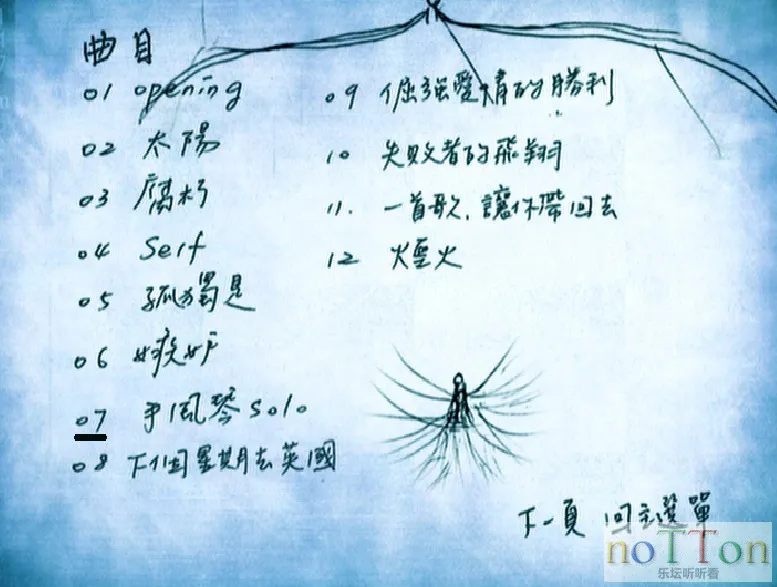 曲目
01 opening
02 太陽
03 腐朽
04 Self
05 孤獨是
06 嫉妒
07 手風琴solo
08 下個星期去英國
09 倔強愛情的勝利
10 失敗者的飛翔
11. 一首歌,讓你帶回去
12 煙火
下一頁 回主選單
noTTon
乐坛听听看